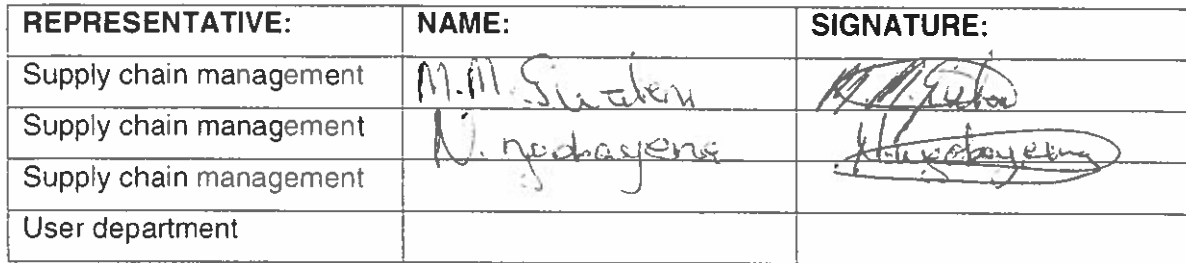 REPRESENTATIVE: NAME: SIGNATURE:
Supply chain management M.M.
Supply chain management N.
Supply chain management
User department